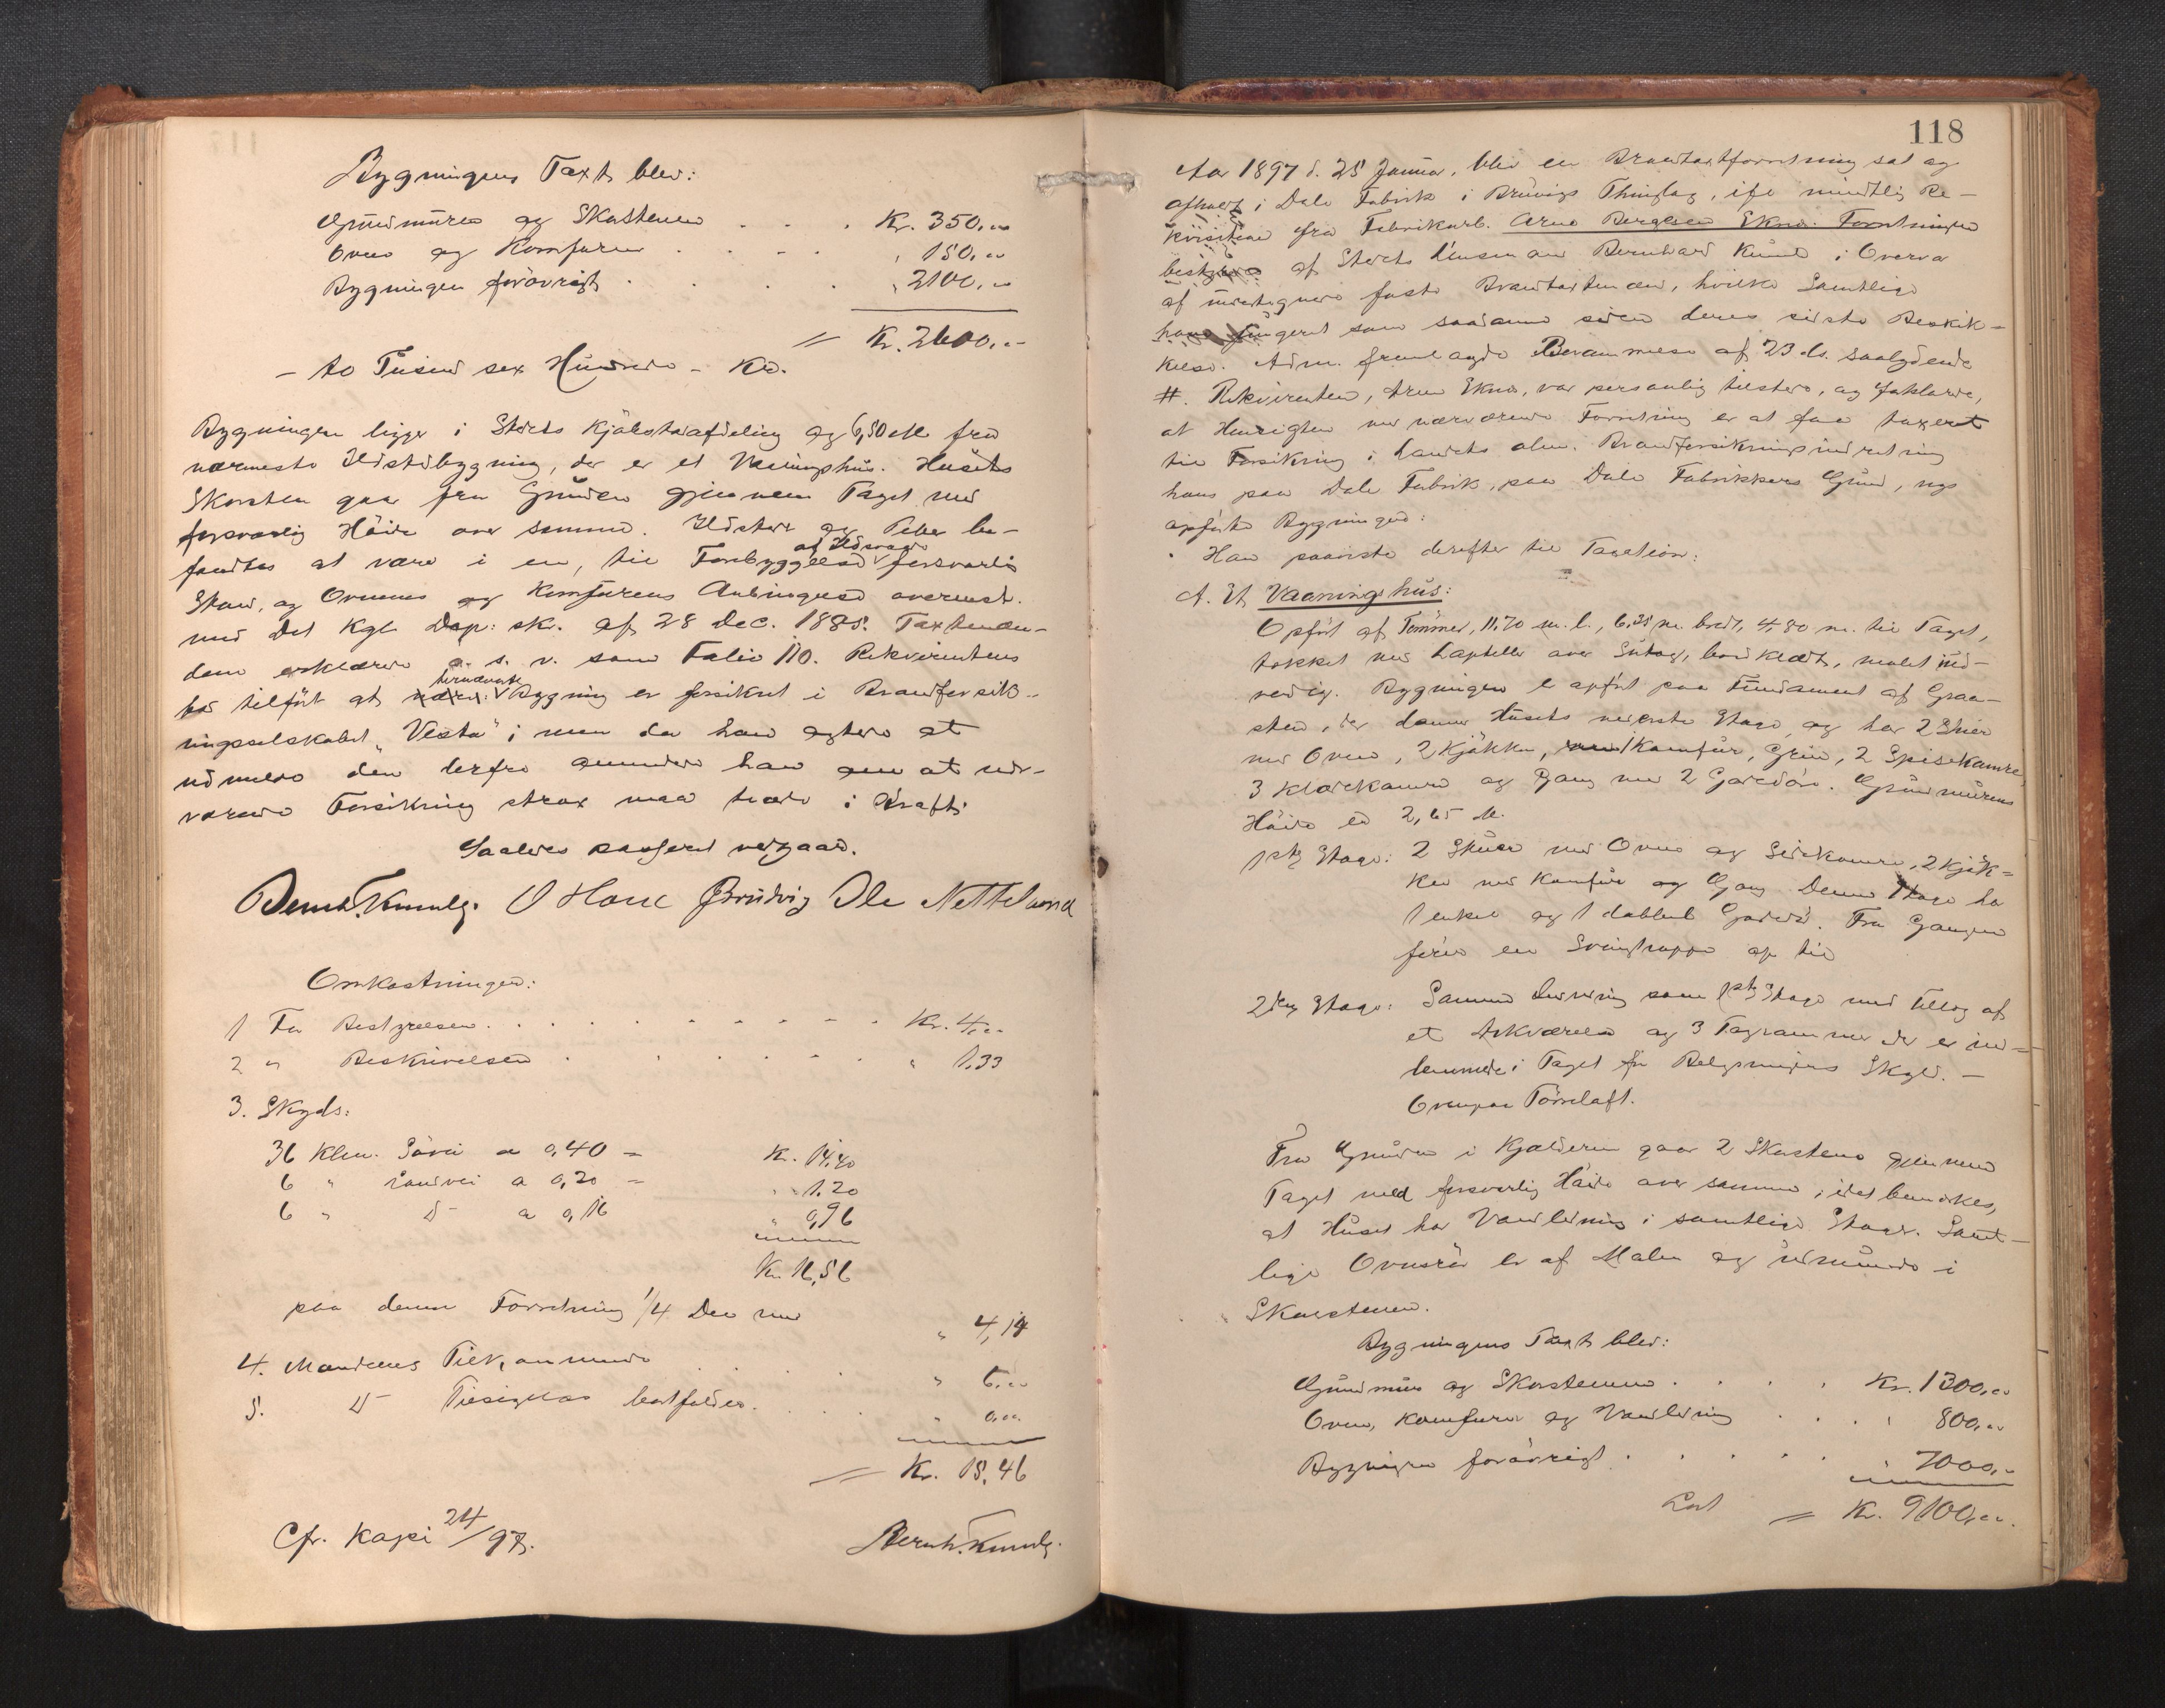 Bygningens Taxt blev:
Grundmuren og Skorstenen . . . Kr. 350,00
Ovne og Komfuren . . . . " 150,00
Bygningen forøvrigt . . . . " 2100,00
= Kr. 2600,00
– to Tusind sex Hundrede – Kr.
Bygningen ligger i Stedets Kjøbstadafdeling og 6,50 M fra
nærmeste Ildstedsbygning, der er et Vaaningshus. Husets
Skorsten gaar fra Grunden gjennem Taget med
forsvarlig Høide over samme. Ildsteder og Piber be-
fandtes at være i en, til Forebyggelse af Ildsvaade forsvarlig
Stand, og Ovnenes og Komfurens Anbringelse overenst.
med Det Kgl. Dep: skr. af 28 Dec. 1885. Taxtmæn-
dene erklærede o. s. v. som Folio 110. Rekvirenten
har tilført at benævnte Bygning er forsikret i Brandforsik-
ringsselskabet „Vesta" i men da han agter at
udmelde den derfra anmoder han om at nær-
værende Forsikring strax maa træde i Kraft.
Saaledes passeret vedgaaes.
Bernh. Kunde. O Hone Bruvig Ole Netteland
Omkostninger:
1 For Bestyrelsen . . . . . . . . . Kr. 4,00
2 " Beskrivelsen . . . . . . " 1,33
3. Skyds:
36 Klm. Søvei a 0,40 = Kr. 14,40
6 " Landvei a 0,20 = " 1.20
6 " D– a 0,16 " 0,96
Kr. 16,56
paa denne Forretning 1/4 Del med " 4,14
4. Mændenes Tilk, anmeldt . . . " 6,00
5. D– Tilsigelse bortfalder. . . . " 0,00
= Kr. 15,46
Cfr. Kopi 24/97.
Bernh. Kunde.
118
Aar 1897 d. 25 Januar, blev en Brandtaxtforretning sat og
afholdt i Dale Fabrik i Bruvigs Thinglag, ifl. mundtlig Re-
kvisition fra Fabrikarb. Arne Bergesen Eknes. Forretningen
bestyres af Stedets Lensmand Bernhard Kunde i Overvær
af undertegnede faste Brandtaxtmænd, hvilke samtlige
have fungeret som saadanne siden deres sidste Beskik-
kelse. Adm. fremlagde Berammelse af 23 ds. saalydende
#. Rekvirenten, Arne Eknes, var personlig tilstede, og forklarede,
at Hensigten med nærværende Forretning er at faa taxeret
til Forsikring i Landets alm. Brandforsikringsindretning
hans paa Dale Fabrik, paa Dale Fabrikkers Grund, nys
opførte Bygninger:
Han paaviste derefter til Taxation:
A. Et Vaaningshus:
Opført af Tømmer, 11,70 m. l., 6,25 m. bredt, 4,80 m. til Taget,
tækket med Lapheller over Sutag, bordklædt, malet ind-
vendig. Bygningen er opført paa Fundament af Graa-
sten, der danner Husets nederste Etage og har 2 Stuer
med Ovne, 2 Kjøkken, Komfur, Grue, 2 Spisekamre
3 Klædekamre og Gang med 2 Gadedøre. Grundmurens
Høide er 2,65 M.
1ste Etage: 2 Stuer med Ovne og Sidekamre, 2 Kjøk-
ken med Komfur og Gang. Denne Etage har
1 enkel og 1 dobbelt Gadedør. Fra Gangen
fører en Svingtrappe op til
2den Etage: Samme Indredning som 1ste Etage med Tillæg af
et Arkværelse og 3 Tagrammer der er ind-
lemmede i Taget for Belysningens Skyld. –
Ovenpaa Tørreloft.
Fra Grunden i Kjælderen gaar 2 Skorstene gjennem
Taget med forsvarlig Høide over samme, idet bemærkes,
at Huset har Vandledning i samtlige Etager. Samt-
lige Ovnsrør er af Malm og indmurede i
Skorstenen.
Bygningens Taxt blev:
Grundmur og Skorstenene . . . . Kr. 1300,00
Ovne, Komfurer og Vandledning . . . " 800,00
Bygningen forøvrigt . . . . . 7000,00
Lat = Kr. 9100,00.